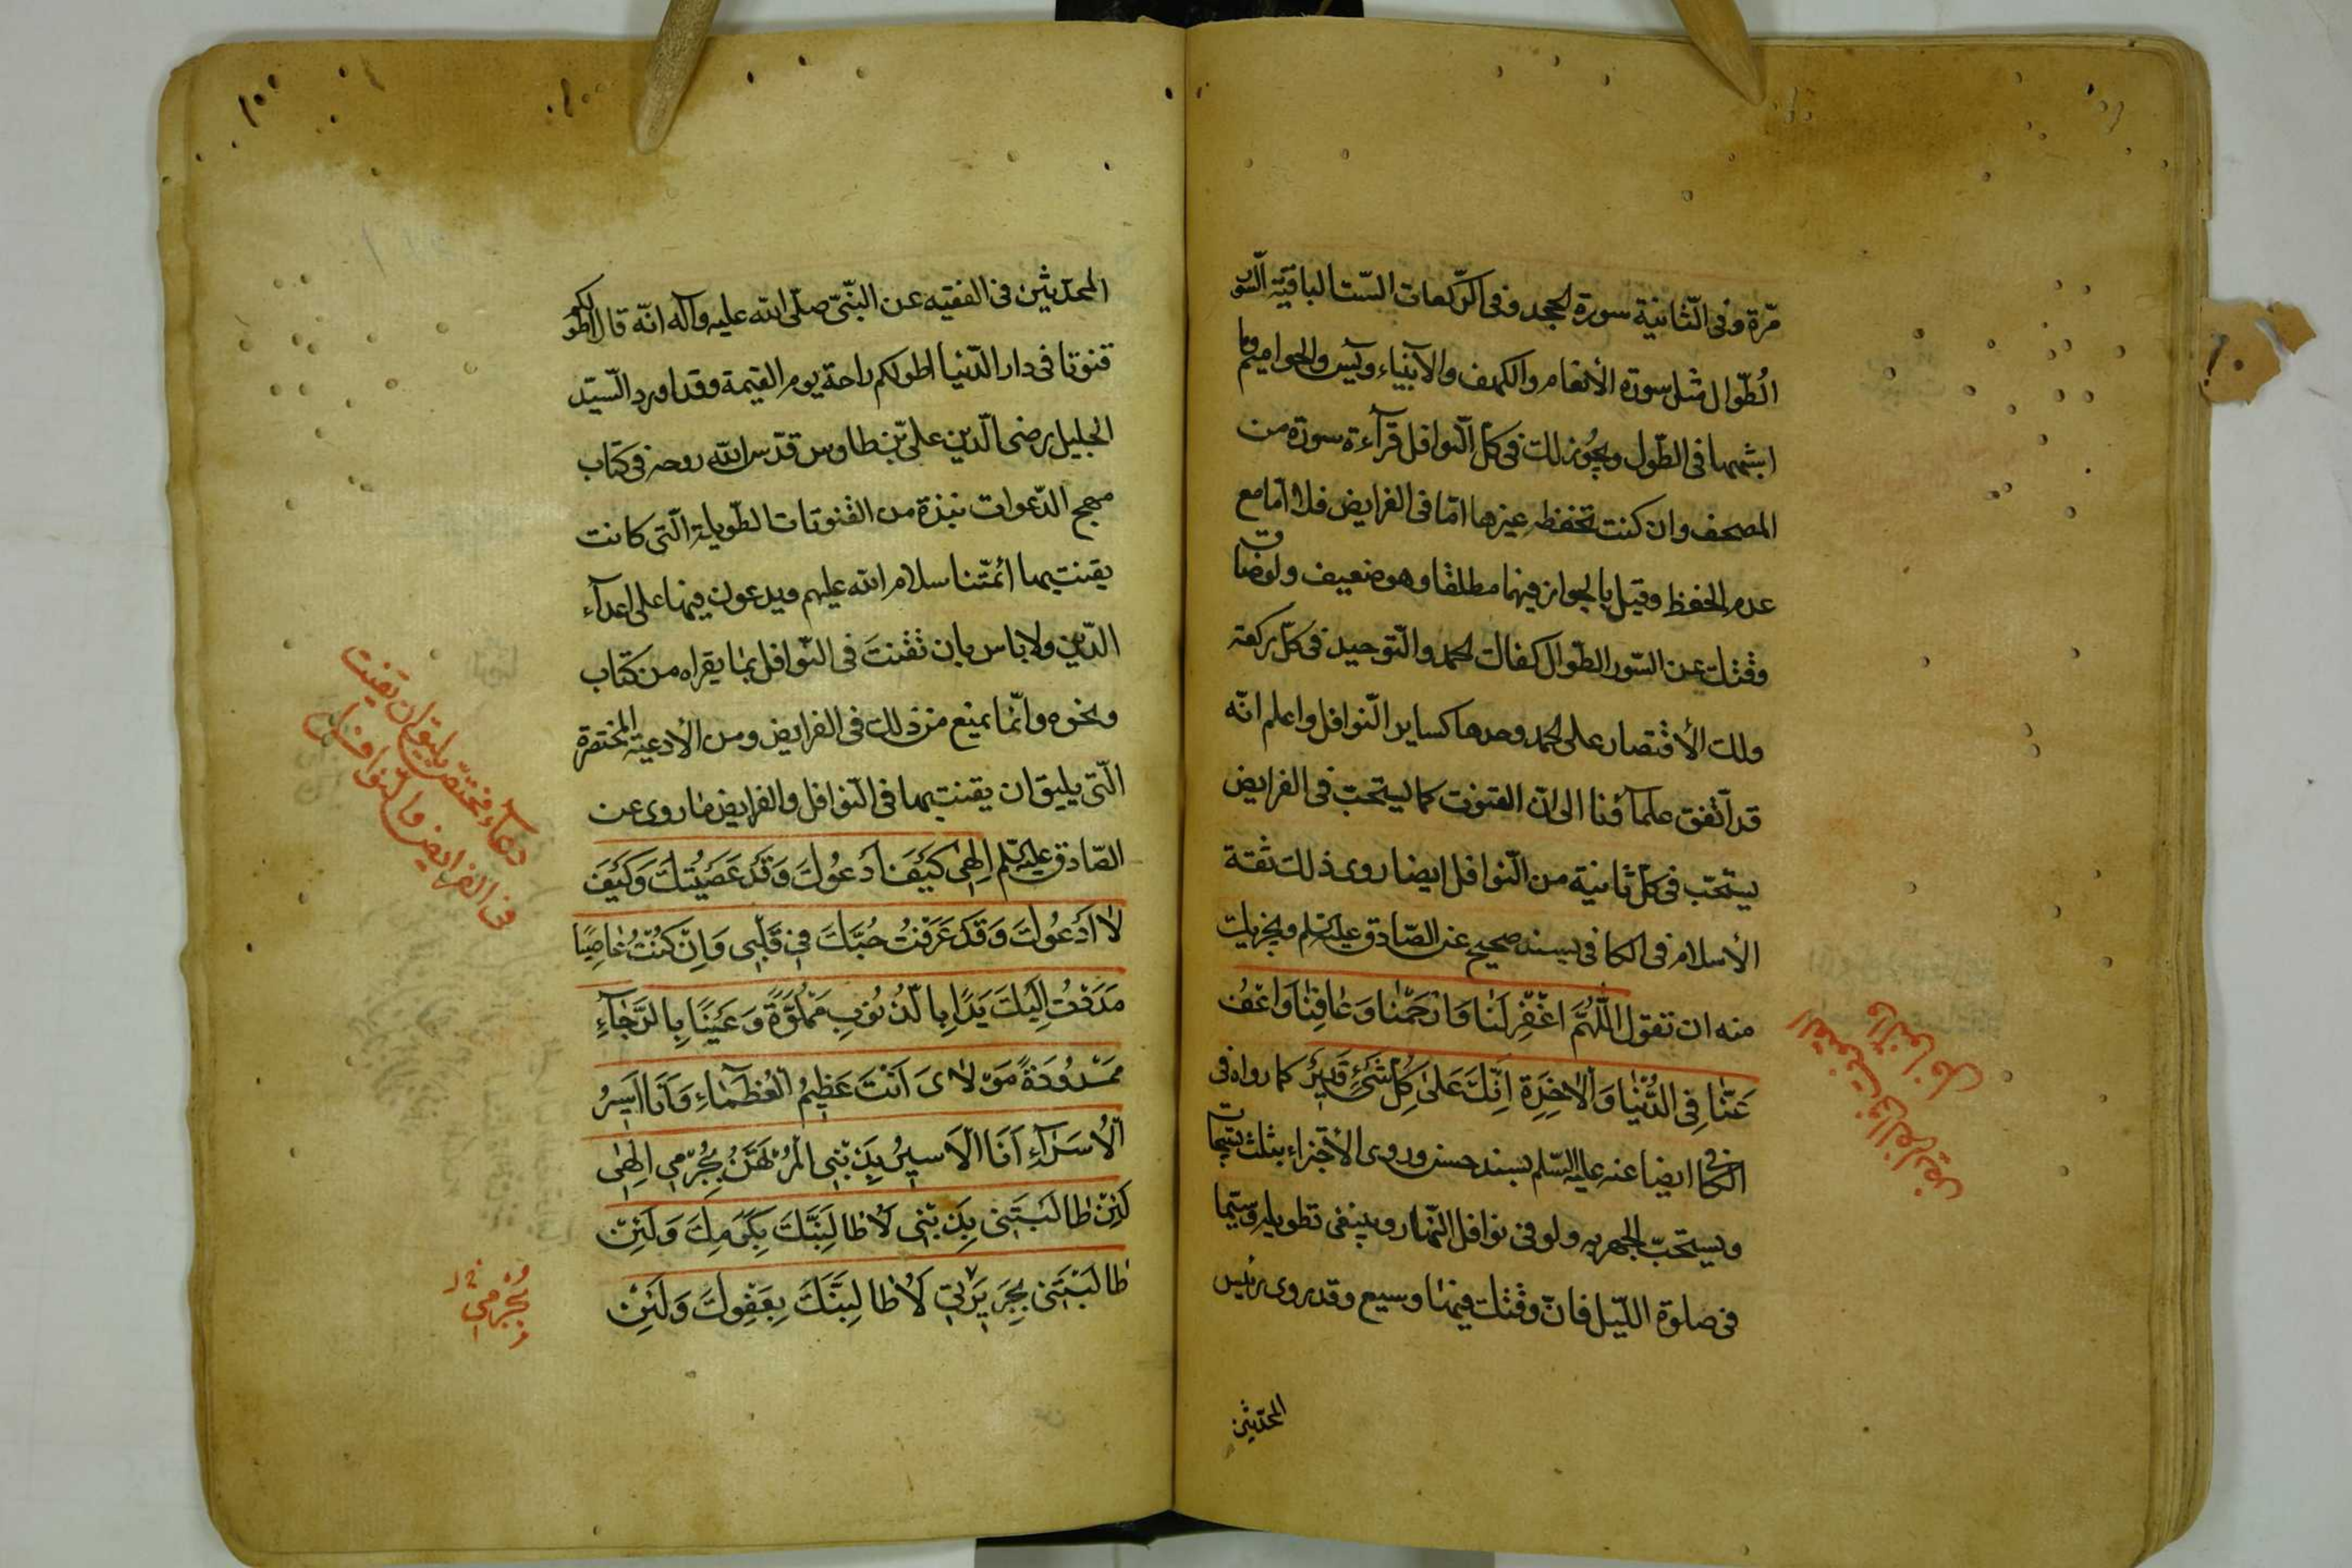 مرّة وفى الثّانية سورة الجحد وفى الرّكعات السّت الباقية السّور
الطّوال مثل سورة الأنعام والكهف والأنبياء ويس والحواميم وما
اشبهها فى الطّول ويجوز لك فى كلّ النّوافل قرآءة سورة من
المصحف وان كنت تحفظ غيرها امّا فى الفرايض فلا امّا مع
عدم الحفظ وقيل بالجواز فيهما مطلقا وهو ضعيف ولو ضاق
وقتك عن السّور الطّوال كفاك الحمد والتّوحيد فى كلّ ركعة
ولك الأقتصار على الحمد وحدها كساير النّوافل واعلم انّه
قد اتّفق علمآؤنا الى انّ القنوت كما يستحبّ فى الفرايض
يستحّب فى كلّ ثانية من النّوافل ايضا روى ذلك ثقة
الأسلام فى الكافى بسند صحيح عن الصّادق عليه السّلم ويجزيك
منه ان تقول اَللّٰهُمَّ اغْفِرْ لَنٰا وَارْحَمْنٰا وَعٰافِنٰا وَاعْفُ
عَنّٰا فِى الدُّنْيٰا وَالْاٰخِرَةِ اِنَّكَ عَلىٰ كُلِّ شَىْءٍ قَدِيرٌ كما رواه فى
الكافى ايضا عنه عليه السّلم بسند حسن وروى الأجتزاء بثلث تسبيحات
ويستحبّ الجهر به ولو فى نوافل النّهار وينبغى تطويله وسيّما
فى صلوة اللّيل فانّ وقتك فيها وسيع وقد روى رئيس
المحدّثين
القنوت فى الفرايض
والنوافل
المحدّثين فى الفقيه عن النبّى صلّى الله عليه وآله انّه قال اطولكم
قنوتا فى دار الدّنيا اطولكم راحة يوم القيمة وقد اورد السّيّد
الجليل رضى الدّين علىّ بن طاوس قدّس الله روحه فى كتاب
مهج الدّعوات نبذة من القنوتات الطّويلة الّتى كانت
يقنت بها ائمّتنا سلام الله عليهم ويدعون فيها على اعدآء
الدّين ولا باس بان تقنتَ فى النّوافل بما يقراه من كتاب
ونحوه وانّما يمنع من ذلك فى الفرايض ومن الأدعية المختصرة
الّتى يليق ان يقنت بها فى النّوافل والفرايض ما روى عن
الصّادق عليه السّلم اِلٰهِى كَيْفَ اَدْعُوكَ وَقَدْ عَصَيْتُكَ وَكَيْفَ
لٰا اَدْعُوكَ وَقَدْ عَرَفْتُ حُبَّكَ فِى قَلْبِى وَاِنْ كُنْتُ عٰاصِيًا
مَدَدْتُ اِلَيْكَ يَدًا بِالذُّنُوبِ مَمْلُوَّةً وَعَيْنًا بِالرَّجٰآءِ
مَمْدُودَةً مَوْلٰاىَ اَنْتَ عَظِيمُ الْعُظَمٰاءِ وَاَنَا اَسِيرُ
الْاُسَرٰآءِ اَنَا الْاَسِيرُ بِذَنْبِى الْمُرْتَهَنُ بِجُرْمِى اِلٰهِى
لَئِنْ طٰالَبْتَنِى بِذَنْبِى لَاُطٰالِبَنَّكَ بِكَرَمِكَ وَلَئِنْ
طٰالَبْتَنِى بِجَرِيرَتِى لَاُطٰالِبَنَّكَ بِعَفْوِكَ وَلَئِنْ
دعآء مختصّ يليق ان تقنت
فى الفرايض والنوافل
بجرمى